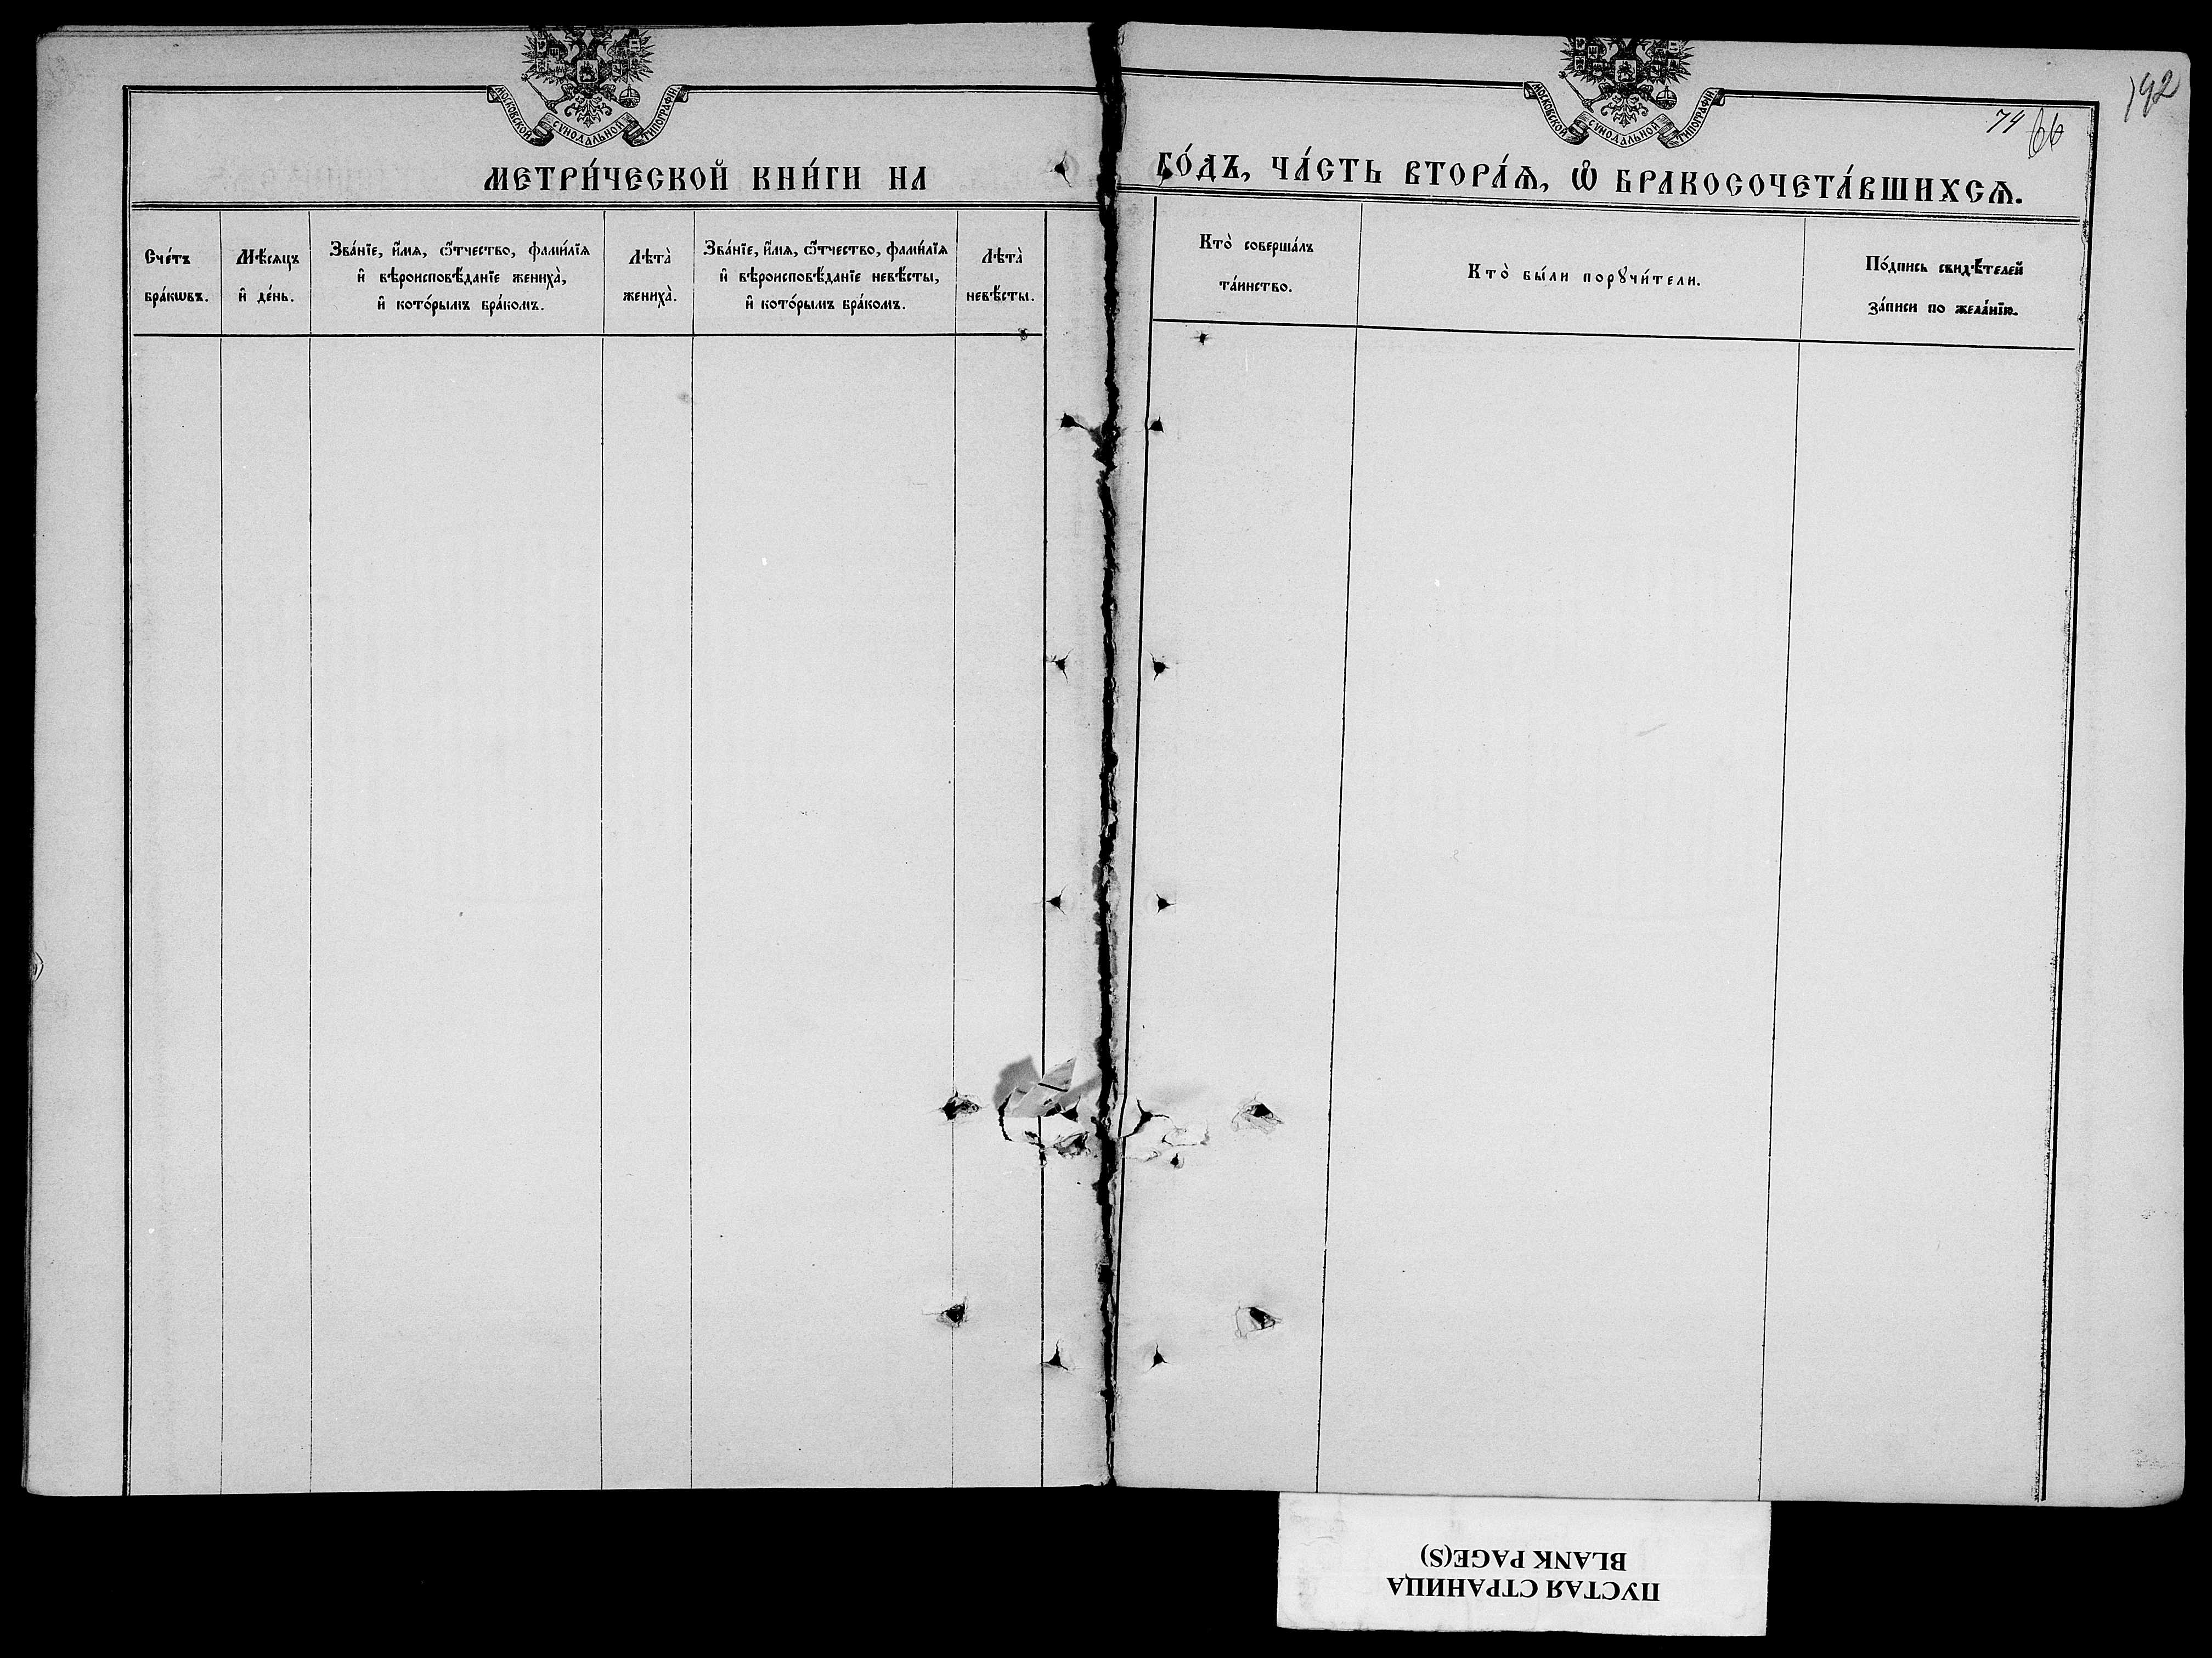 МОСКОВСКОЙ СѴНОДАЛЬНОЙ ТИПОГРАФІИ
МЕТРИ́ЧЕСКОЙ КНИ́ГИ НА
Сче́тъ
бра́кѡвъ.
Мѣ́сяцъ
и҆ де́нь.
Зва́нїе, и҆́мя, ѻ҆́тчество, фами́лїя
и҆ вѣроисповѣ́данїе жениха̀,
и҆ кото́рымъ бра́комъ.
Лѣта̀
жениха̀.
Зва́нїе, и҆́мя, ѻ҆́тчество, фами́лїя
и҆ вѣроисповѣ́данїе невѣ́сты,
и҆ кото́рымъ бра́комъ.
Лѣта̀
невѣ́сты.
192
74 66
МОСКОВСКОЙ СѴНОДАЛЬНОЙ ТИПОГРАФІИ
ГО́ДЪ, ЧА́СТЬ ВТОРА́Ѧ, Ѽ БРАКОСОЧЕТА́ВШИХСѦ.
Кто̀ соверша́лъ
та́инство.
Кто̀ бы́ли порꙋчи́тели.
По́дпись свидѣ́телей
за́писи по жела́нїю.
ПУСТАЯ СТРАНИЦА
BLANK PAGE(S)